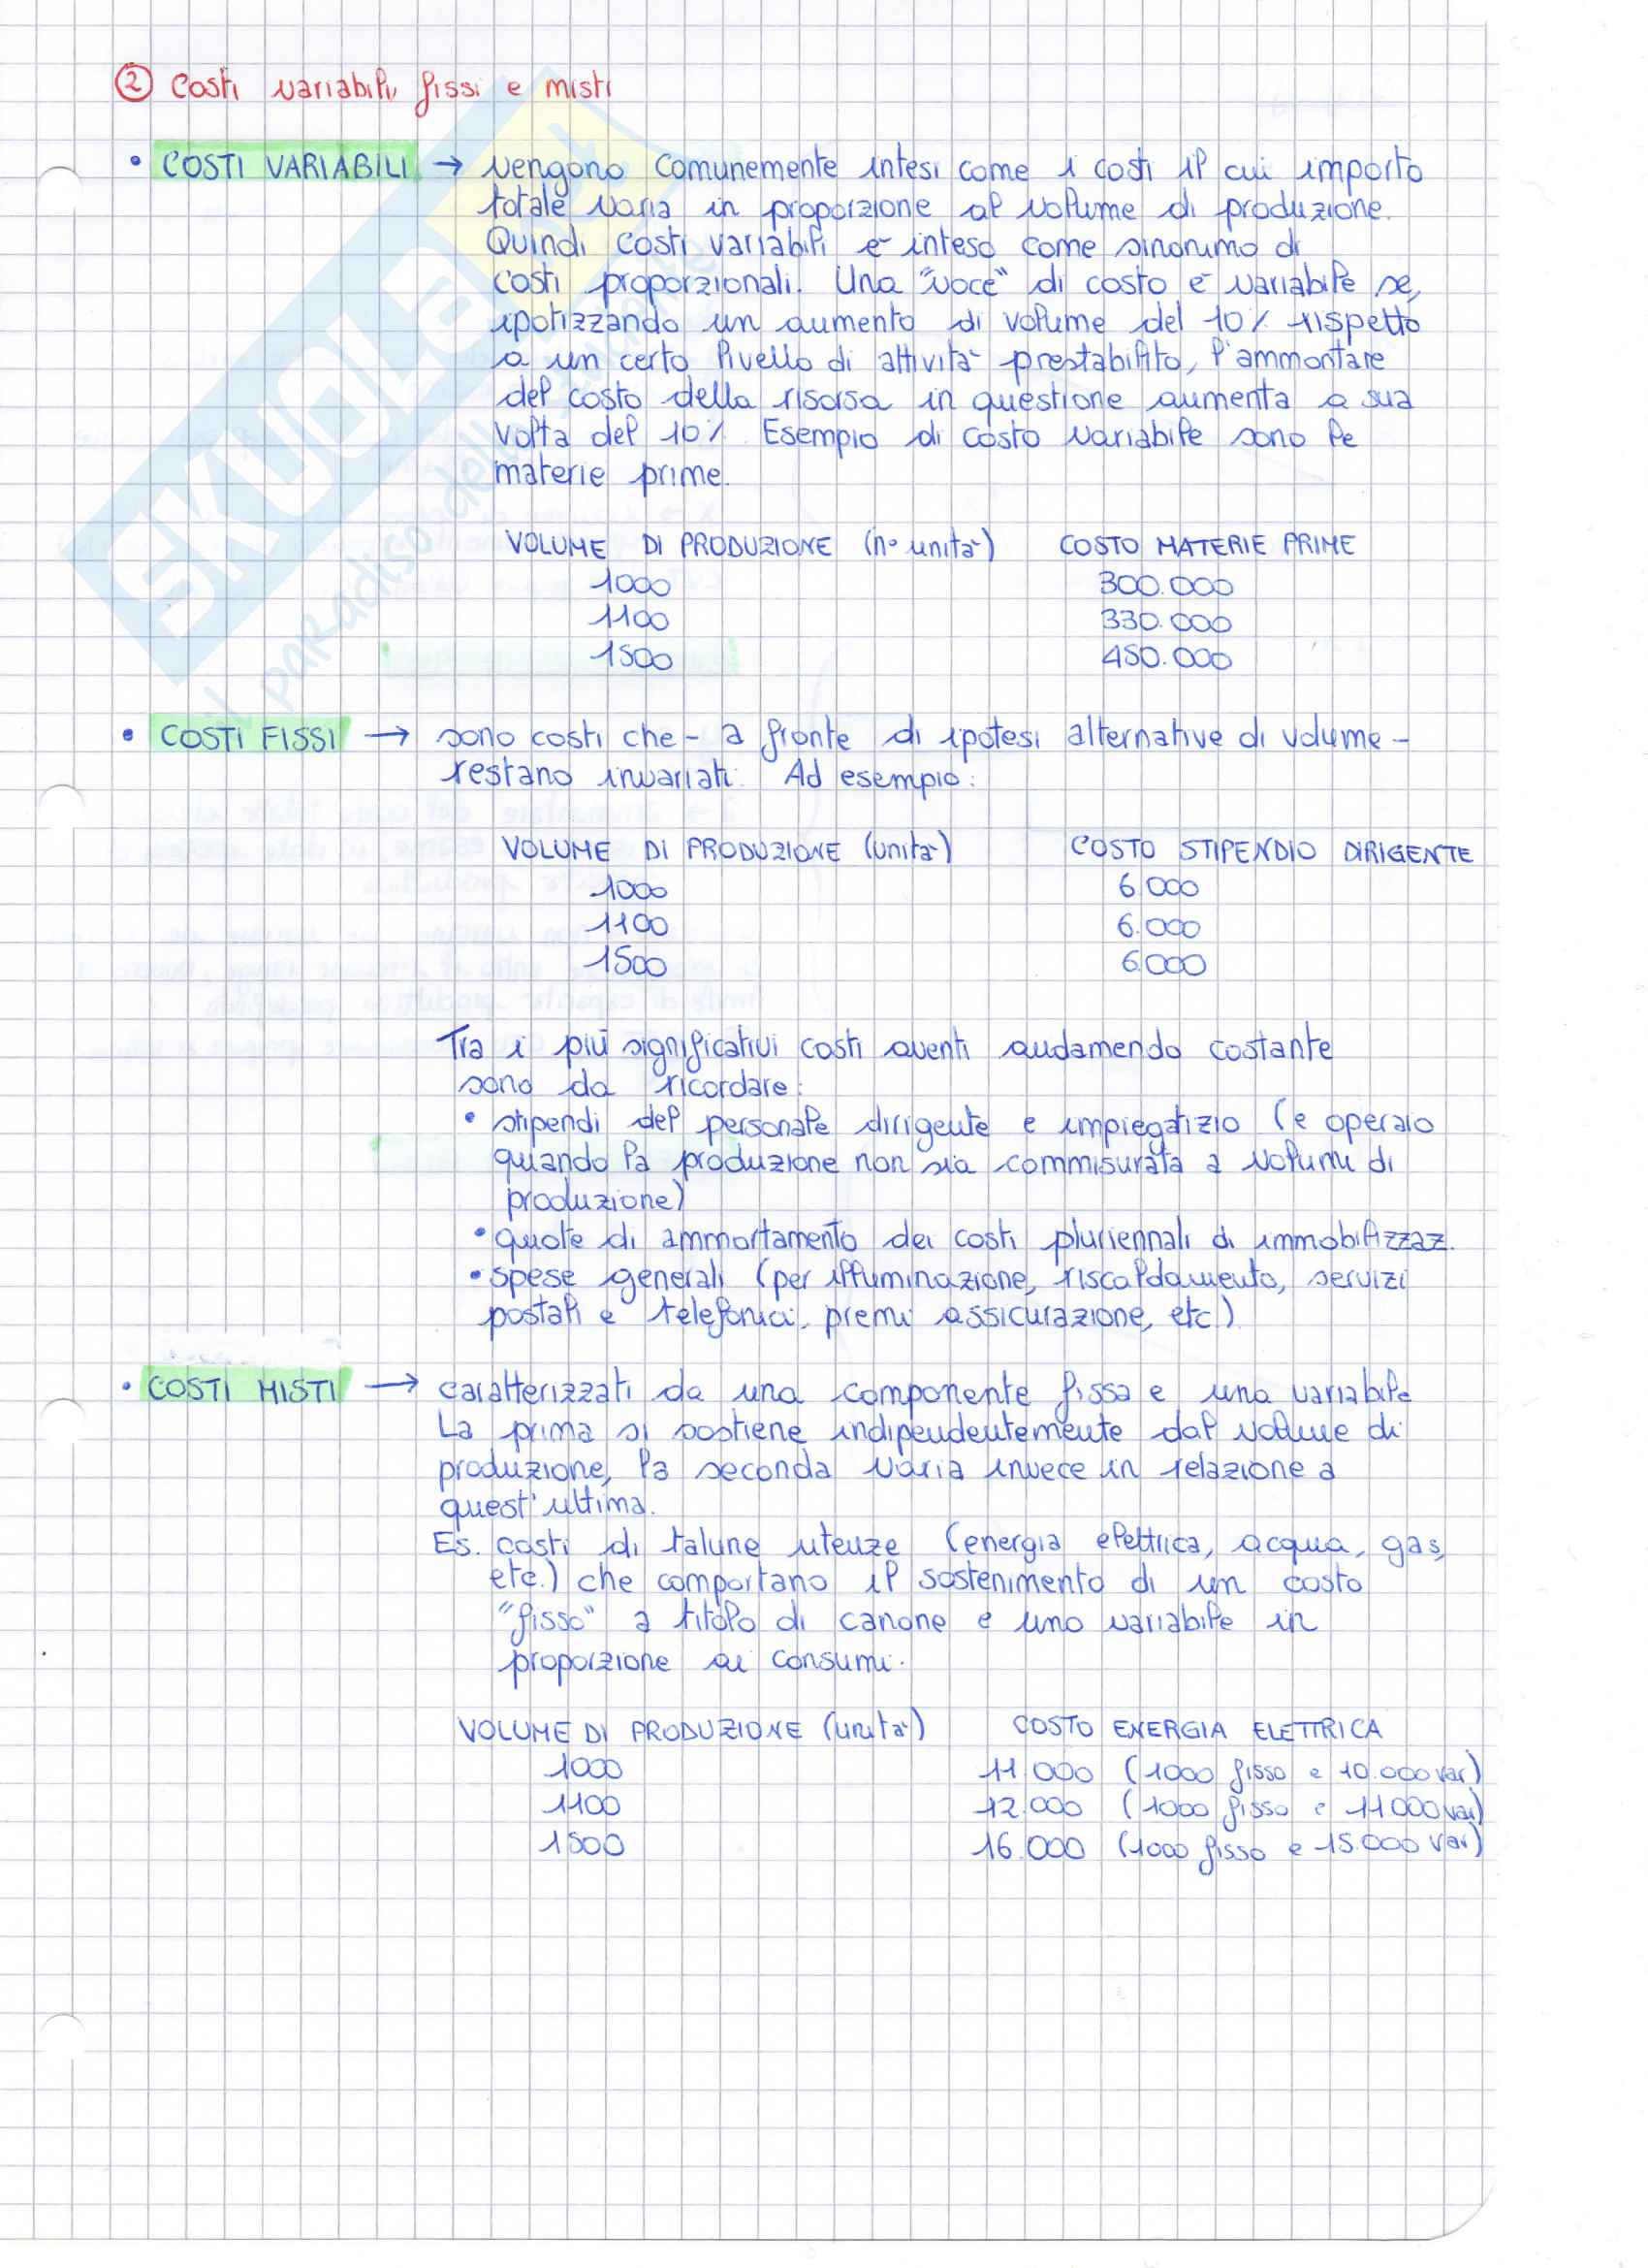 ② Costi variabili, fissi e misti
• COSTI VARIABILI → vengono comunemente intesi come i costi il cui importo
totale varia in proporzione al volume di produzione.
Quindi costi variabili è inteso come sinonimo di
costi proporzionali. Una "voce" di costo è variabile se,
ipotizzando un aumento di volume del 10% rispetto
a un certo livello di attività prestabilito, l'ammontare
del costo della risorsa in questione aumenta a sua
volta del 10%. Esempio di costo variabile sono le
materie prime.
VOLUME DI PRODUZIONE (n° unità) COSTO MATERIE PRIME
1000 300.000
1100 330.000
1500 450.000
• COSTI FISSI → sono costi che - a fronte di ipotesi alternative di volume -
restano invariati. Ad esempio:
VOLUME DI PRODUZIONE (unità) COSTO STIPENDIO DIRIGENTE
1000 6.000
1100 6.000
1500 6.000
Tra i più significativi costi aventi andamendo costante
sono da ricordare:
• stipendi del personale dirigente e impiegatizio (e operaio
quando la produzione non sia commisurata a volumi di
produzione)
• quote di ammortamento dei costi pluriennali di immobilizzaz.
• spese generali (per illuminazione, riscaldamento, servizi
postali e telefonici, premi assicurazione, etc.)
• COSTI MISTI → caratterizzati da una componente fissa e una variabile
La prima si sostiene indipendentemente dal volume di
produzione, la seconda varia invece in relazione a
quest'ultima.
Es. costi di talune utenze (energia elettrica, acqua, gas,
etc.) che comportano il sostenimento di un costo
"fisso" a titolo di canone e uno variabile in
proporzione ai consumi.
VOLUME DI PRODUZIONE (unità) COSTO ENERGIA ELETTRICA
1000 11.000 (1000 fisso e 10.000 var)
1100 12.000 (1000 fisso e 11.000 var)
1500 16.000 (1000 fisso e 15.000 var)
SKUOLA.net
il paradiso dello studente